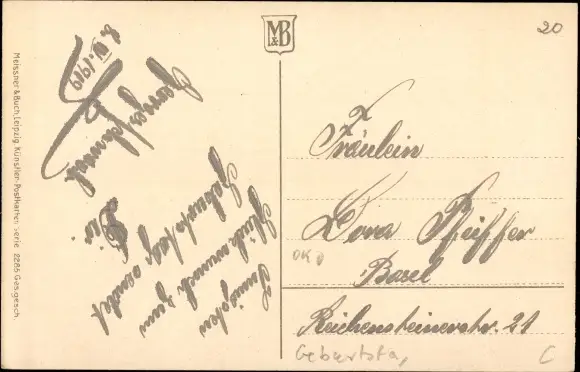 Meissner & Buch, Leipzig. Künstler-Postkarten Serie 2286 Ges. gesch.
M&B
20
Innigsten
Glückwunsch zum
Geburtstag sendet
Dir
8. IV. 1919
Fräulein
Dora Pfeiffer
Basel
Reichensteinerstr. 21
Geburtsta,
C